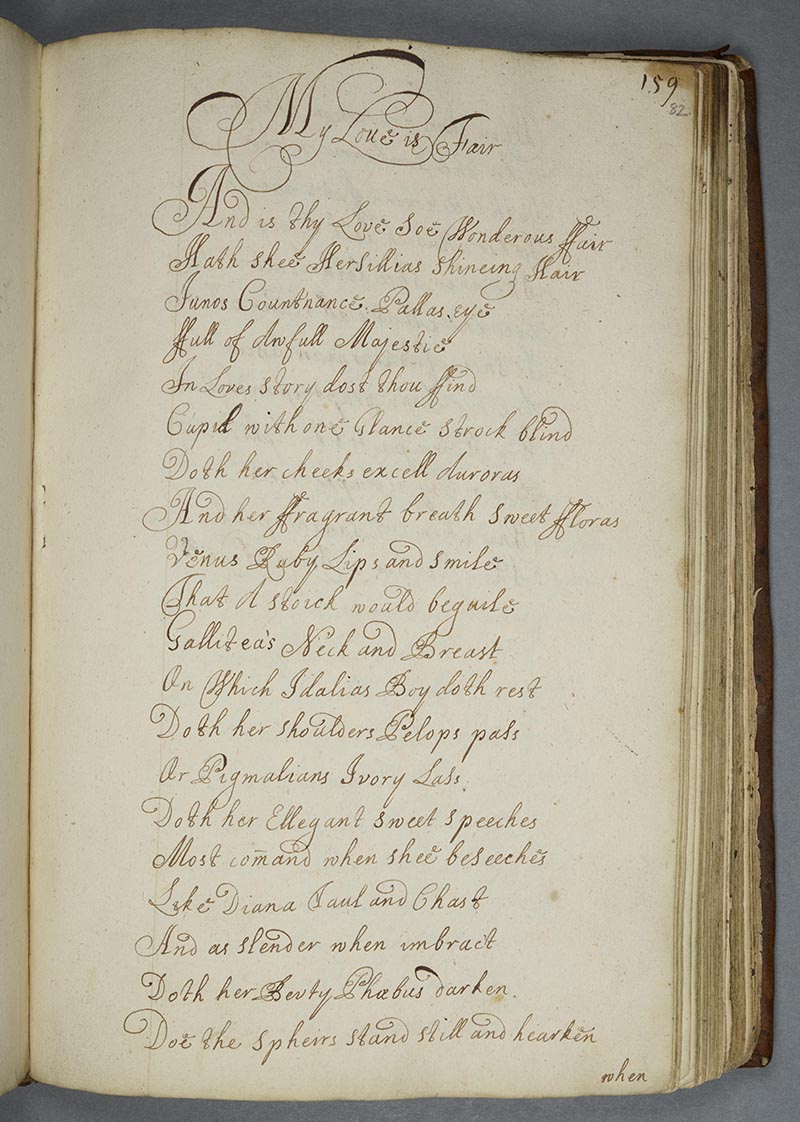 159
82
My Loue is Fair
And is thy Love Soe Wonderous ffair
Hath shee Hersillias shineing Hair
Junos Countnance. Pallas. eye
ffull of Awfull Majestie
In Loves story dost thou ffind
Cupid with one Glance strock blind
Doth her cheeks excell Auroras
And her ffragrant breath sweet ffloras
Venus Ruby Lips and smile
That A stoick would beguile
Gallitea's Neck and Breast
On Which Idalias Boy doth rest
Doth her shoulders Pelops pass
Or Pigmalians Ivory Lass
Doth her Ellegant sweet speeches
Most com̄and when shee beseeches
Like Diana Taul and Chast
And as slender when imbract
Doth her Bevty Phœbus darken.
Doe the spheirs stand still and hearken
when